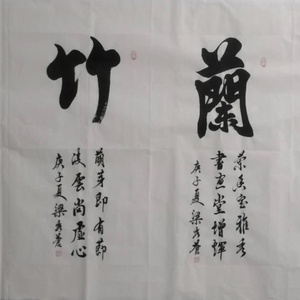 蘭
香室雅秀
書堂增輝
庚子夏梁
竹
萌芽即有節
凌雲尚虛心
庚子夏梁